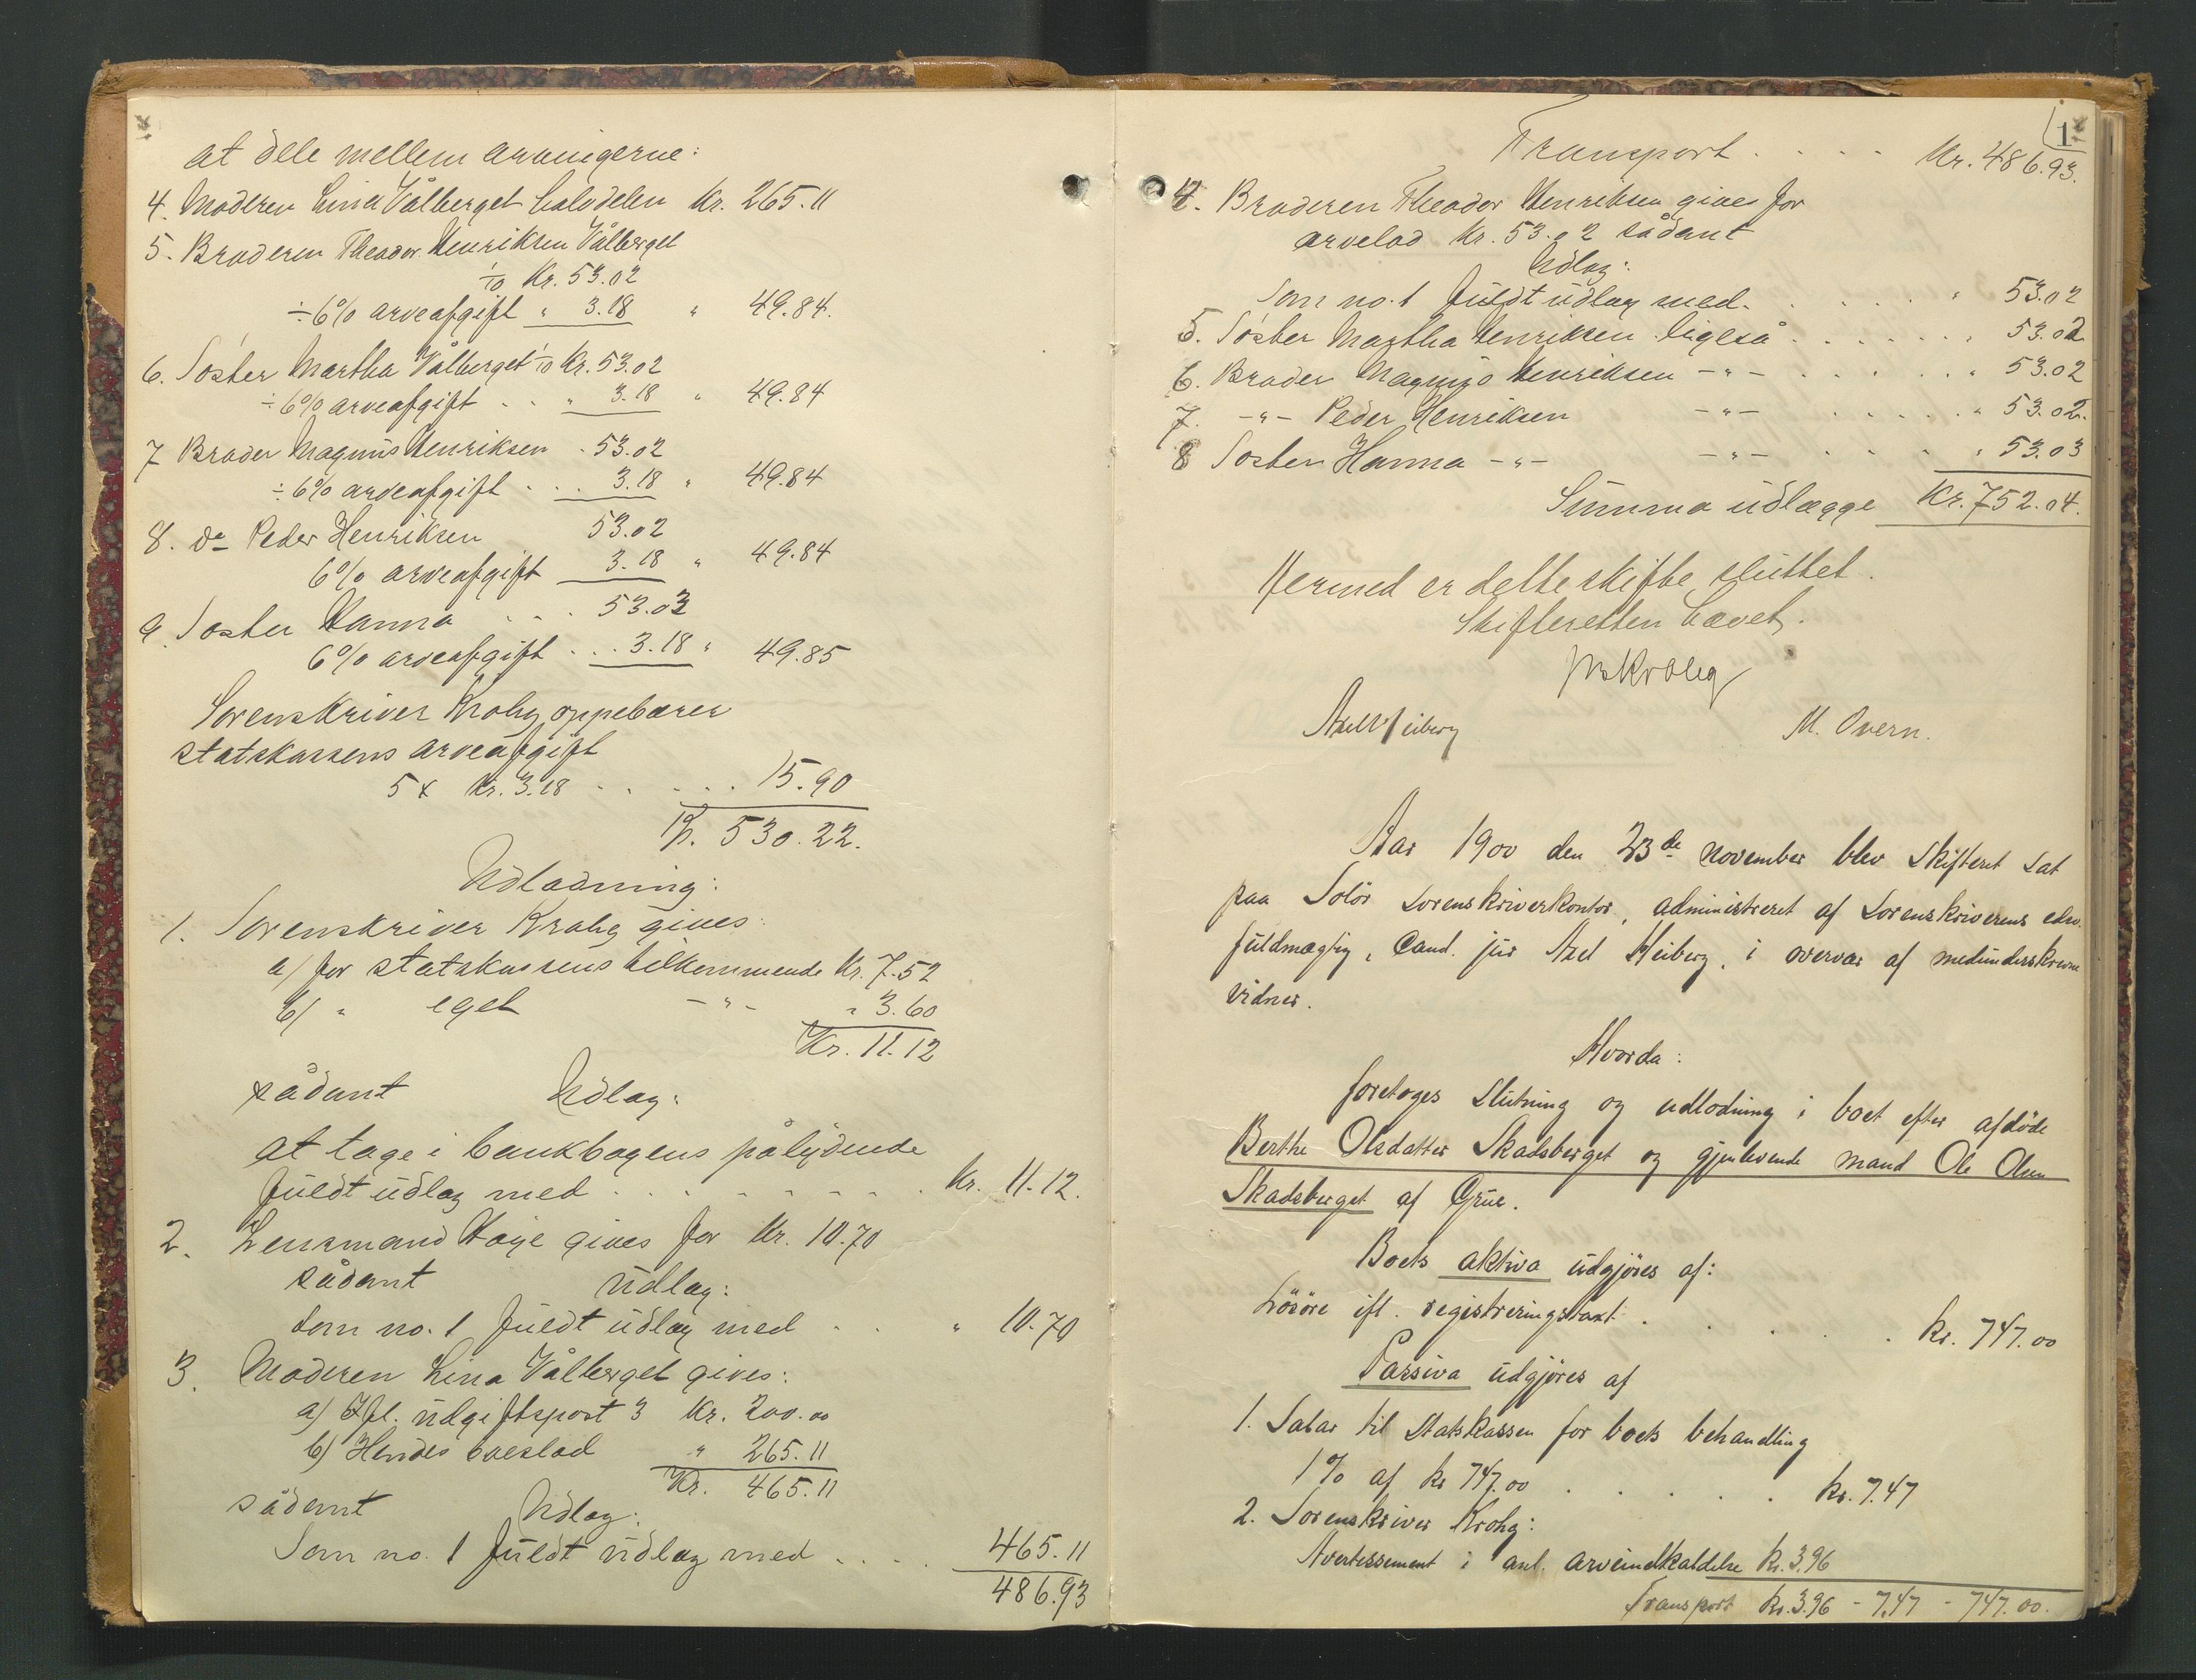 at dele mellem arvingerne:
4. Moderen Lina Vålberget halvdelen Kr. 265.11
5. Broderen Theodor Henriksen Vålberget
1/10 Kr. 53.02
÷ 6% arveafgift " 3.18 " 49.84.
6. Søster Martha Vålberget 1/10 Kr. 53.02
÷ 6% arveafgift . . " 3.18 " 49.84
7 Broder Magnus Henriksen . 53.02
÷ 6% arveafgift . . . 3.18 " 49.84
8. do Peder Henriksen 53.02
6% arveafgift 3.18 " 49.84
9. Søster Hanna . . . 53.03
6% arveafgift . . . 3.18 " 49.85
Sorenskriver Krohg oppebærer
statskassens arveafgift
5 x Kr. 3.18 . . . . . 15.90
Kr. 530.22.
Udlodning:
1. Sorenskriver Krohg gives:
a/ for statskassens tilkommende Kr. 7.52
b/ " eget - " - " 3.60
Kr. 11.12
sådant Udlæg:
at tage i bankbogens pålydende
fuldt udlæg med . . . . . . . . Kr. 11.12.
2. Lensmand Høye gives for Kr. 10.70
sådant Udlæg:
som no. 1 fuldt udlæg med . . " 10.70
3. Moderen Lina Vålberget gives:
a/ Ifl. udgiftspost 3 Kr. 200.00
b/ Hendes boeslod " 265.11
Kr. 465.11
sådant Udlæg:
Som no. 1 fuldt udlæg med . . . . 465.11
486.93
1
Transport . . . . Kr. 486.93.
4. Broderen Theodor Henriksen gives for
arvelod Kr. 53.02 sådant
Udlæg:
Som no. 1 fuldt udlæg med . . . . . " 53.02
5. Søster Martha Henriksen ligeså . . . . . . " 53.02
6. Broder Magnus Henriksen - " - . . . . . " 53.02
7. - " - Peder Henriksen - " - . . . . . " 53.02.
8 Søster Hanna - " - - " - . . . . " 53.03
Summa udlægge Kr. 752.04.
Hermed er dette skifte sluttet.
Skifteretten hævet.
Krohg
Axel Heiberg M. Overn.
Aar 1900 den 23de november blev Skifteret sat
paa Solør Sorenskriverkontor, administreret af Sorenskriverens edsv.
fuldmægtig, Cand. jur Axel Heiberg, i overvær af medunderskrevne
vidner.
Hvorda:
foretoges Slutning og udlodning i boet efter afdøde
Berthe Olsdatter Skadsberget og gjenlevende mand Ole Olsen
Skadsberget af Grue.
Boets aktiva udgjøres af:
Løsøre ifl. registreringstaxt . . . . . . kr. 747.00
Passiva udgjøres af
1. Salær til Statskassen for boets behandling
1% af kr 747.00 . . . . . . kr. 7.47
2. Sorenskriver Krohg:
Avertissement i anl. arveindkaldelse kr. 3.96
Transport kr. 3.96 - 7.47 - 747.00.